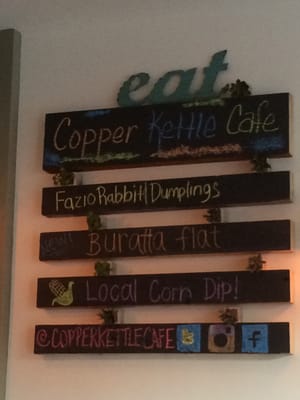 eat
Copper Kettle Cafe
Fazio Rabbit | Dumplings
NEW! Buratta flat
Local Corn Dip!
@COPPERKETTLECAFE f